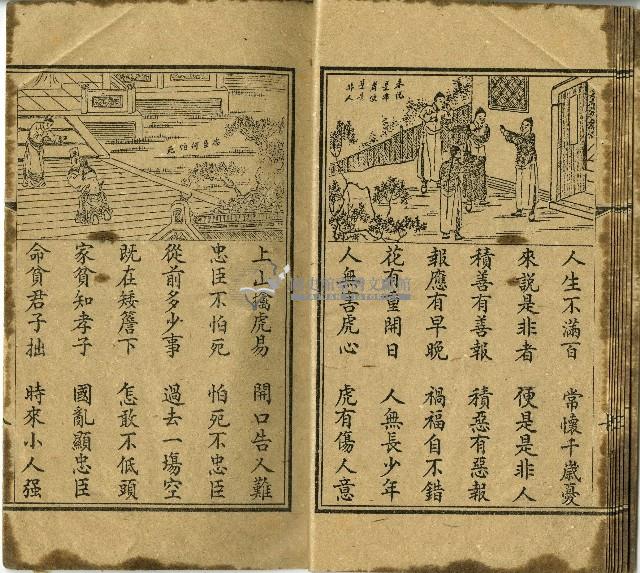 來說
是非
者便
是是
非人
人生不滿百 常懷千歲憂
來說是非者 便是是非人
積善有善報 積惡有惡報
報應有早晚 禍福自不錯
花有重開日 人無長少年
人無害虎心 虎有傷人意
忠臣何怕死
上山擒虎易 開口告人難
忠臣不怕死 怕死不忠臣
從前多少事 過去一場空
既在矮簷下 怎敢不低頭
家貧知孝子 國亂顯忠臣
命貧君子拙 時來小人强